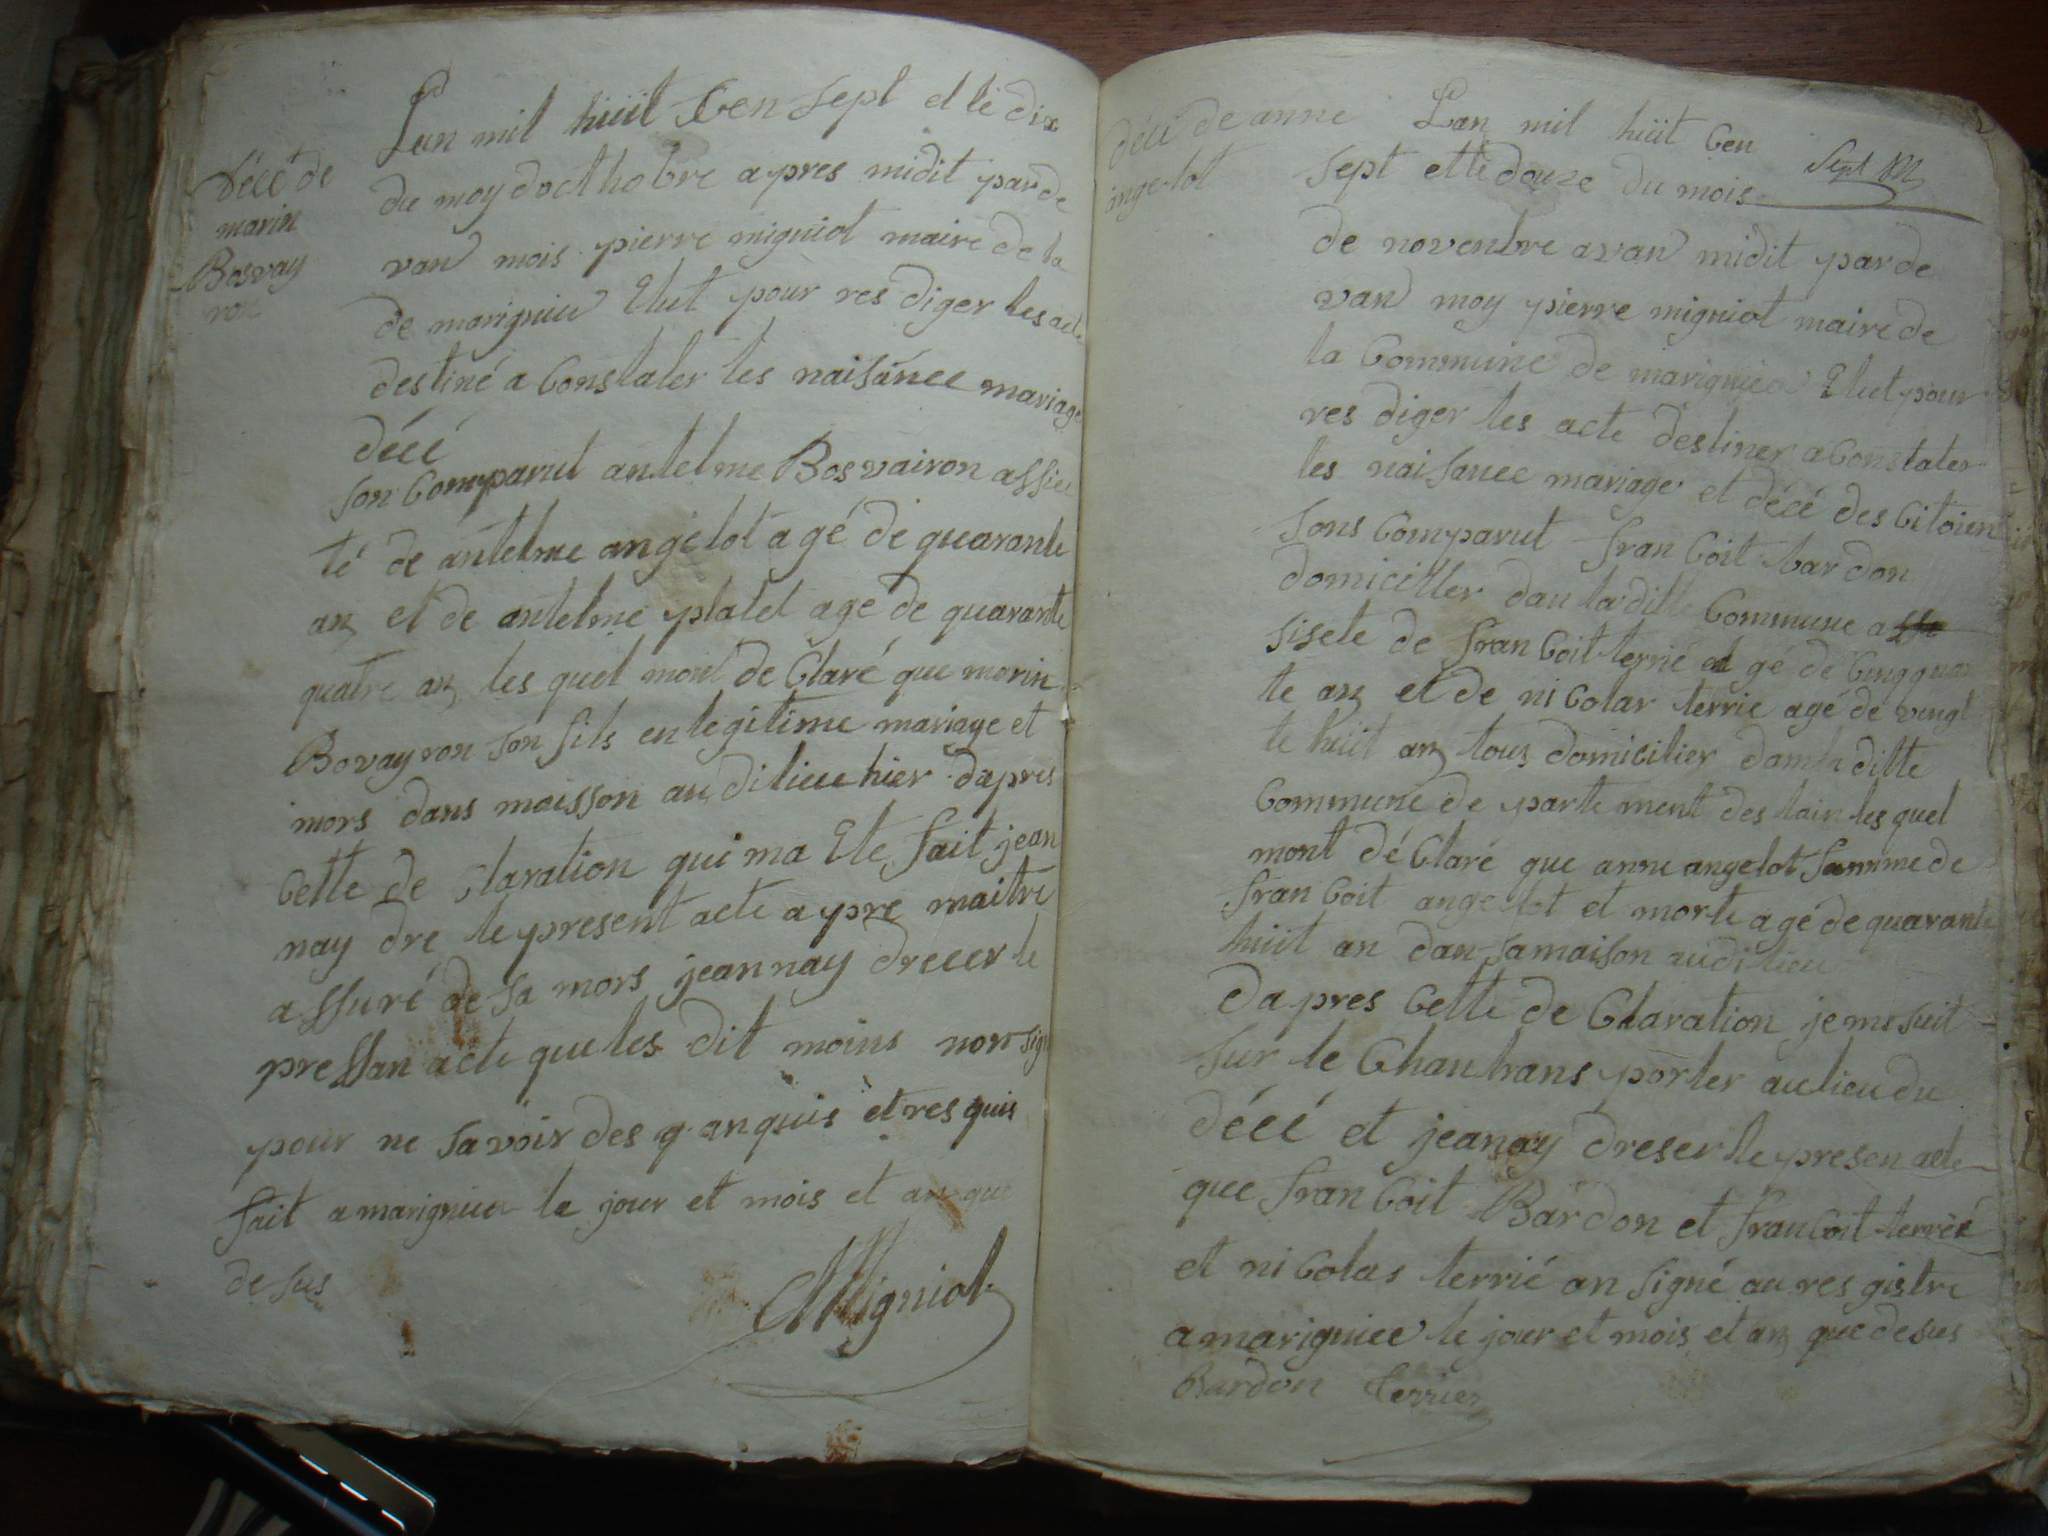 décé de
marin
Bosvay
ron
Lan mil huit Cen Sept et le dix
du moy docthobre apres midit parde
van mois pierre migniot maire de la
de marignieu Elut pour res diger les acte
destiné a Constater les naisance mariage
décé
son Comparut antelme Bosvairon assis
té de antelme angelot agé de quarante
an et de antelme platet agé de quarante
quatre an les quel mont de Claré que marin
Bovayron son fils en legitime mariage et
mors dans maisson au di lieu hier dapres
Cette de Claration qui ma Ete fait jean
nay dre le present acte a pre maitre
assuré de sa mors jeannay dreeer le
pressan acte que les dit moins non sign
pour ne savoir des q. anquis et res quis
fait a marignieu le jour et mois et an que
de sus
Migniot
décé de anne
angelot
Sept
Lan mil huit Cen
sept et le douze du mois
de novenbre avan midit parde
van moy pierre migniot maire de
la Commune de marignieu Elut pour
res diger les acte destiner a Constater
les naisance mariage et décé des Citoien
sons Comparut fran Coit bardon
domiciller dan la ditte Commune a
sisete de fran Coit terrié agé de Cinqquan
te an et de ni Colas terrié agé de vingt
te huit an tous domicilier dan la ditte
Commune de parte ment des lain les quel
mont dé Claré que anne angelot famme de
fran Coit angelot et morte agé de quarante
huit an dan sa maison audi lieu
dapres Cette de Claration je me suit
sur le Chan trans porter au lieu du
décé et jeanay dreser le presen acte
que fran Coit Bardon et fran Coit terrié
et ni Colas terrié an signé au res gistre
a marignieu le jour et mois et an que desus
Bardon terrier